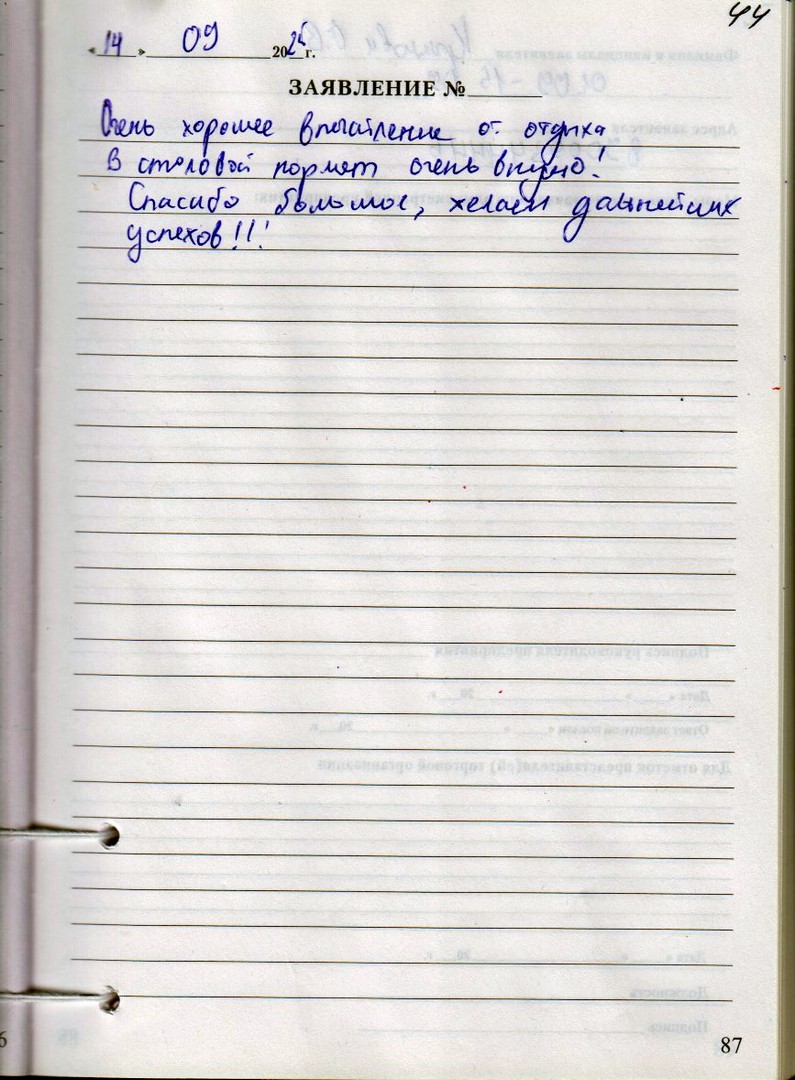 44
«14» 09 2025г.
ЗАЯВЛЕНИЕ №
Очень хорошее впечатление от отдыха
В столовой кормят очень вкусно!
Спасибо большое, желаем дальнейших
успехов!!!
87